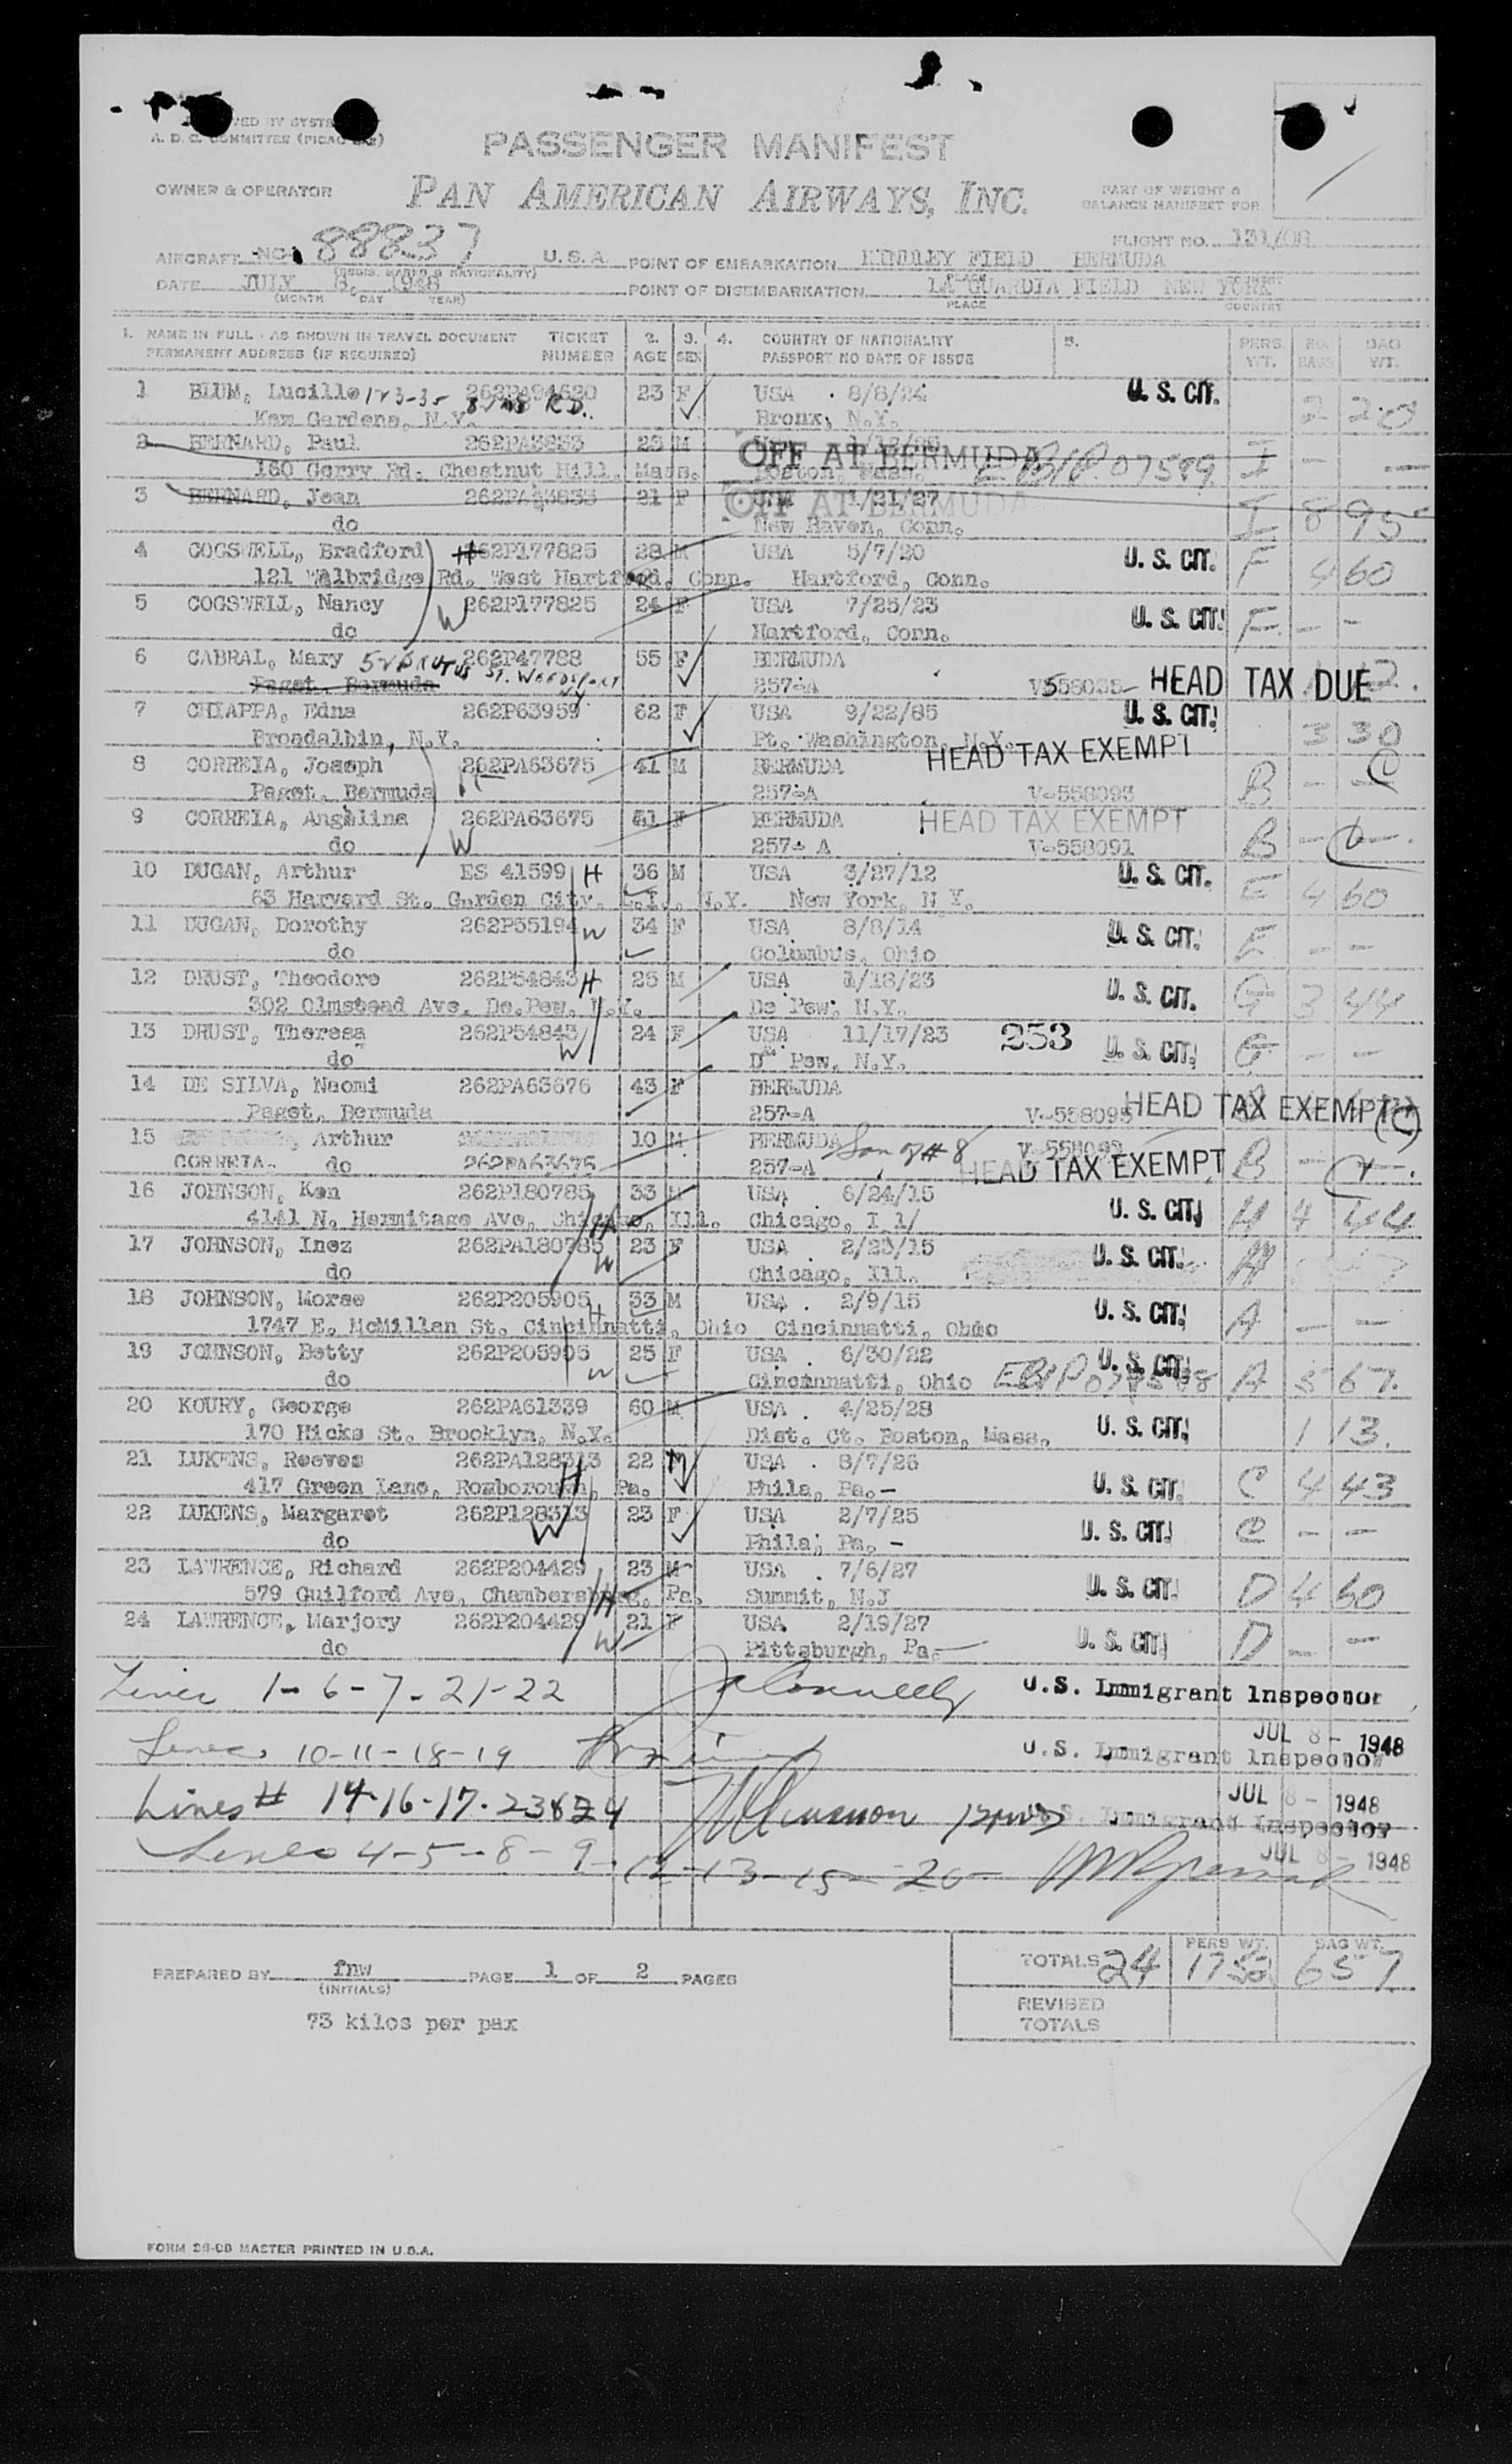 A. D. C. COMMITTEE
PASSENGER MANIFEST
OWNER & OPERATOR PAN AMERICAN AIRWAYS, INC.
PART OF WEIGHT & BALANCE MANIFEST FOR
FLIGHT NO. 131/08
AIRCRAFT NC- 88837 U.S.A. POINT OF EMBARKATION KINDLEY FIELD BERMUDA
(REGIS. MARKS & NATIONALITY) PLACE
DATE JULY 8, 1948 POINT OF DISEMBARKATION LA GUARDIA FIELD NEW YORK
(MONTH DAY YEAR) PLACE COUNTRY
1. NAME IN FULL - AS SHOWN IN TRAVEL DOCUMENT TICKET 2. 3. 4. COUNTRY OF NATIONALITY 5. PERS. NO. BAG
PERMANENT ADDRESS (IF REQUIRED) NUMBER AGE SEX PASSPORT NO DATE OF ISSUE WT. BAGS WT.
1 BLUM, Lucille 262PA94620 23 F USA 8/8/24 U. S. CIT.
Kew Gardens, N.Y. Bronx, N.Y. 2 20
2 BERNARD, Paul 23 M OFF AT BERMUDA I - -
160 Gerry Rd. Chestnut Hill, Mass. Boston, Mass. 07589
3 BERNARD, Jean 21 F 1/21/27 OFF AT BERMUDA I 8 95
do New Haven, Conn.
4 COGSWELL, Bradford H 262P177825 28 M USA 5/7/20 U. S. CIT. F 4 60
121 Walbridge Rd. West Hartford, Conn. Hartford, Conn.
5 COGSWELL, Nancy W 262P177825 24 F USA 7/25/23 U. S. CIT. F - -
do Hartford, Conn.
6 CABRAL, Mary 262P47788 55 F BERMUDA
Paget, Bermuda 257-A HEAD TAX DUE
7 CHIAPPA, Edna 262P63959 62 F USA 9/22/85 U. S. CIT.
Broadalbin, N.Y. Pt. Washington, N.Y. 3 30
8 CORREIA, Joseph 262PA63675 41 M BERMUDA HEAD TAX EXEMPT B - -
Paget, Bermuda 257-A V-558093
9 CORREIA, Angelina W 262PA63675 41 F BERMUDA HEAD TAX EXEMPT B - -
do 257- A V-558091
10 DUGAN, Arthur ES 41599 H 36 M USA 3/27/12 U. S. CIT. E 4 60
63 Harvard St. Garden City, L.I., N.Y. New York, N Y.
11 DUGAN, Dorothy 262P55194 W 34 F USA 8/8/14 U. S. CIT. E - -
do Columbus, Ohio
12 DRUST, Theodore 262P54843 H 25 M USA 1/18/23 U. S. CIT. G 3 44
302 Olmstead Ave. De.Pew, N.Y. De Pew, N.Y.
13 DRUST, Theresa 262P54843 W 24 F USA 11/17/23 253 U. S. CIT. G - -
do De Pew, N.Y.
14 DE SILVA, Naomi 262PA63676 43 F BERMUDA
Paget, Bermuda 257-A V-558095 HEAD TAX EXEMPT (C)
15 Arthur 10 M BERMUDA Son of #8
CORREIA. do 262PA63675 257-A HEAD TAX EXEMPT B -
16 JOHNSON, Ken 262P180785 33 M USA 6/24/15 U. S. CIT. H 4 44
4141 N. Hermitage Ave, Chicago, Ill. Chicago, I l/
17 JOHNSON, Inez 262PA180785 W 23 F USA 2/23/15 U. S. CIT. H
do Chicago, Ill.
18 JOHNSON, Morse 262P205905 H 33 M USA 2/9/15 U. S. CIT. A - -
1747 E. McMillan St. Cincinnatti, Ohio Cincinnatti, Ohio
19 JOHNSON, Betty 262P205905 W 25 F USA 6/30/22 U. S. CIT. A 5 67.
do Cincinnatti, Ohio
20 KOURY, George 262PA61339 60 M USA 4/25/28 U. S. CIT. 1 13.
170 Hicks St. Brooklyn, N.Y. Dist. Ct. Boston, Mass.
21 LUKENS, Reeves 262PA128313 H 22 M USA 8/7/26 U. S. CIT. C 4 43
417 Green Lane, Romborough, Pa. Phila, Pa.-
22 LUKENS, Margaret 262P128313 W 23 F USA 2/7/25 U. S. CIT. C - -
do Phila; Pa. -
23 LAWRENCE, Richard 262P204429 H 23 M USA 7/6/27 U. S. CIT. D 4 60
579 Guilford Ave, Chambersburg, Pa. Summit, N.J
24 LAWRENCE, Marjory 262P204429 W 21 F USA 2/19/27 U. S. CIT. D - -
do Pittsburgh, Pa.
Lines 1- 6- 7- 21-22 U.S. Immigrant Inspector
JUL 8 - 1948
Lines 10-11-18-19 U.S. Immigrant Inspector
JUL 8 - 1948
Lines # 14-16-17-23&24 U.S. Immigrant Inspector
JUL 8 - 1948
Lines 4-5-8-9-12-13-15-20
PREPARED BY fnw PAGE 1 OF 2 PAGES
(INITIALS)
TOTALS 24 PERS WT. BAG WT. 657
73 kilos per pax
REVISED TOTALS
MASTER PRINTED IN U.S.A.